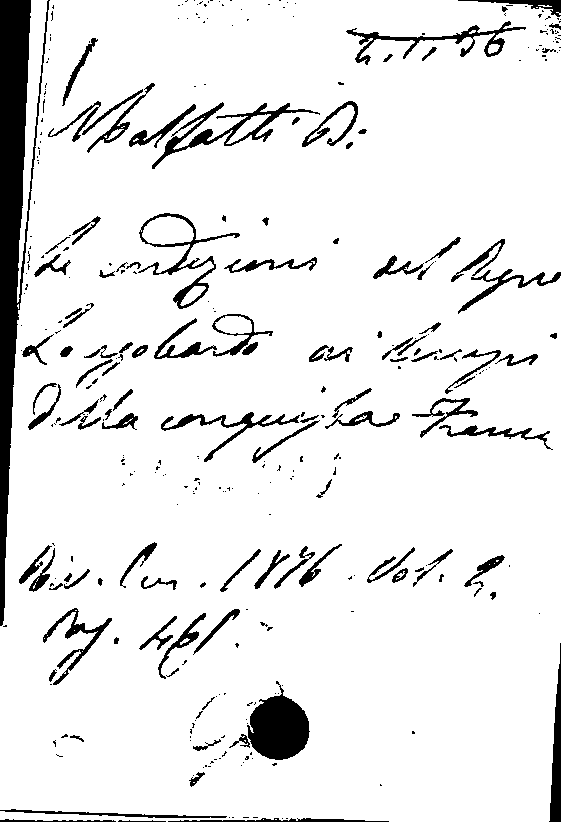 2.1.36
Malfatti B.
Le condizioni del Regno
Longobardo ai tempi
della conquista Franca
Riv. Eur. 1876 Vol. 2.
Pag. 461.